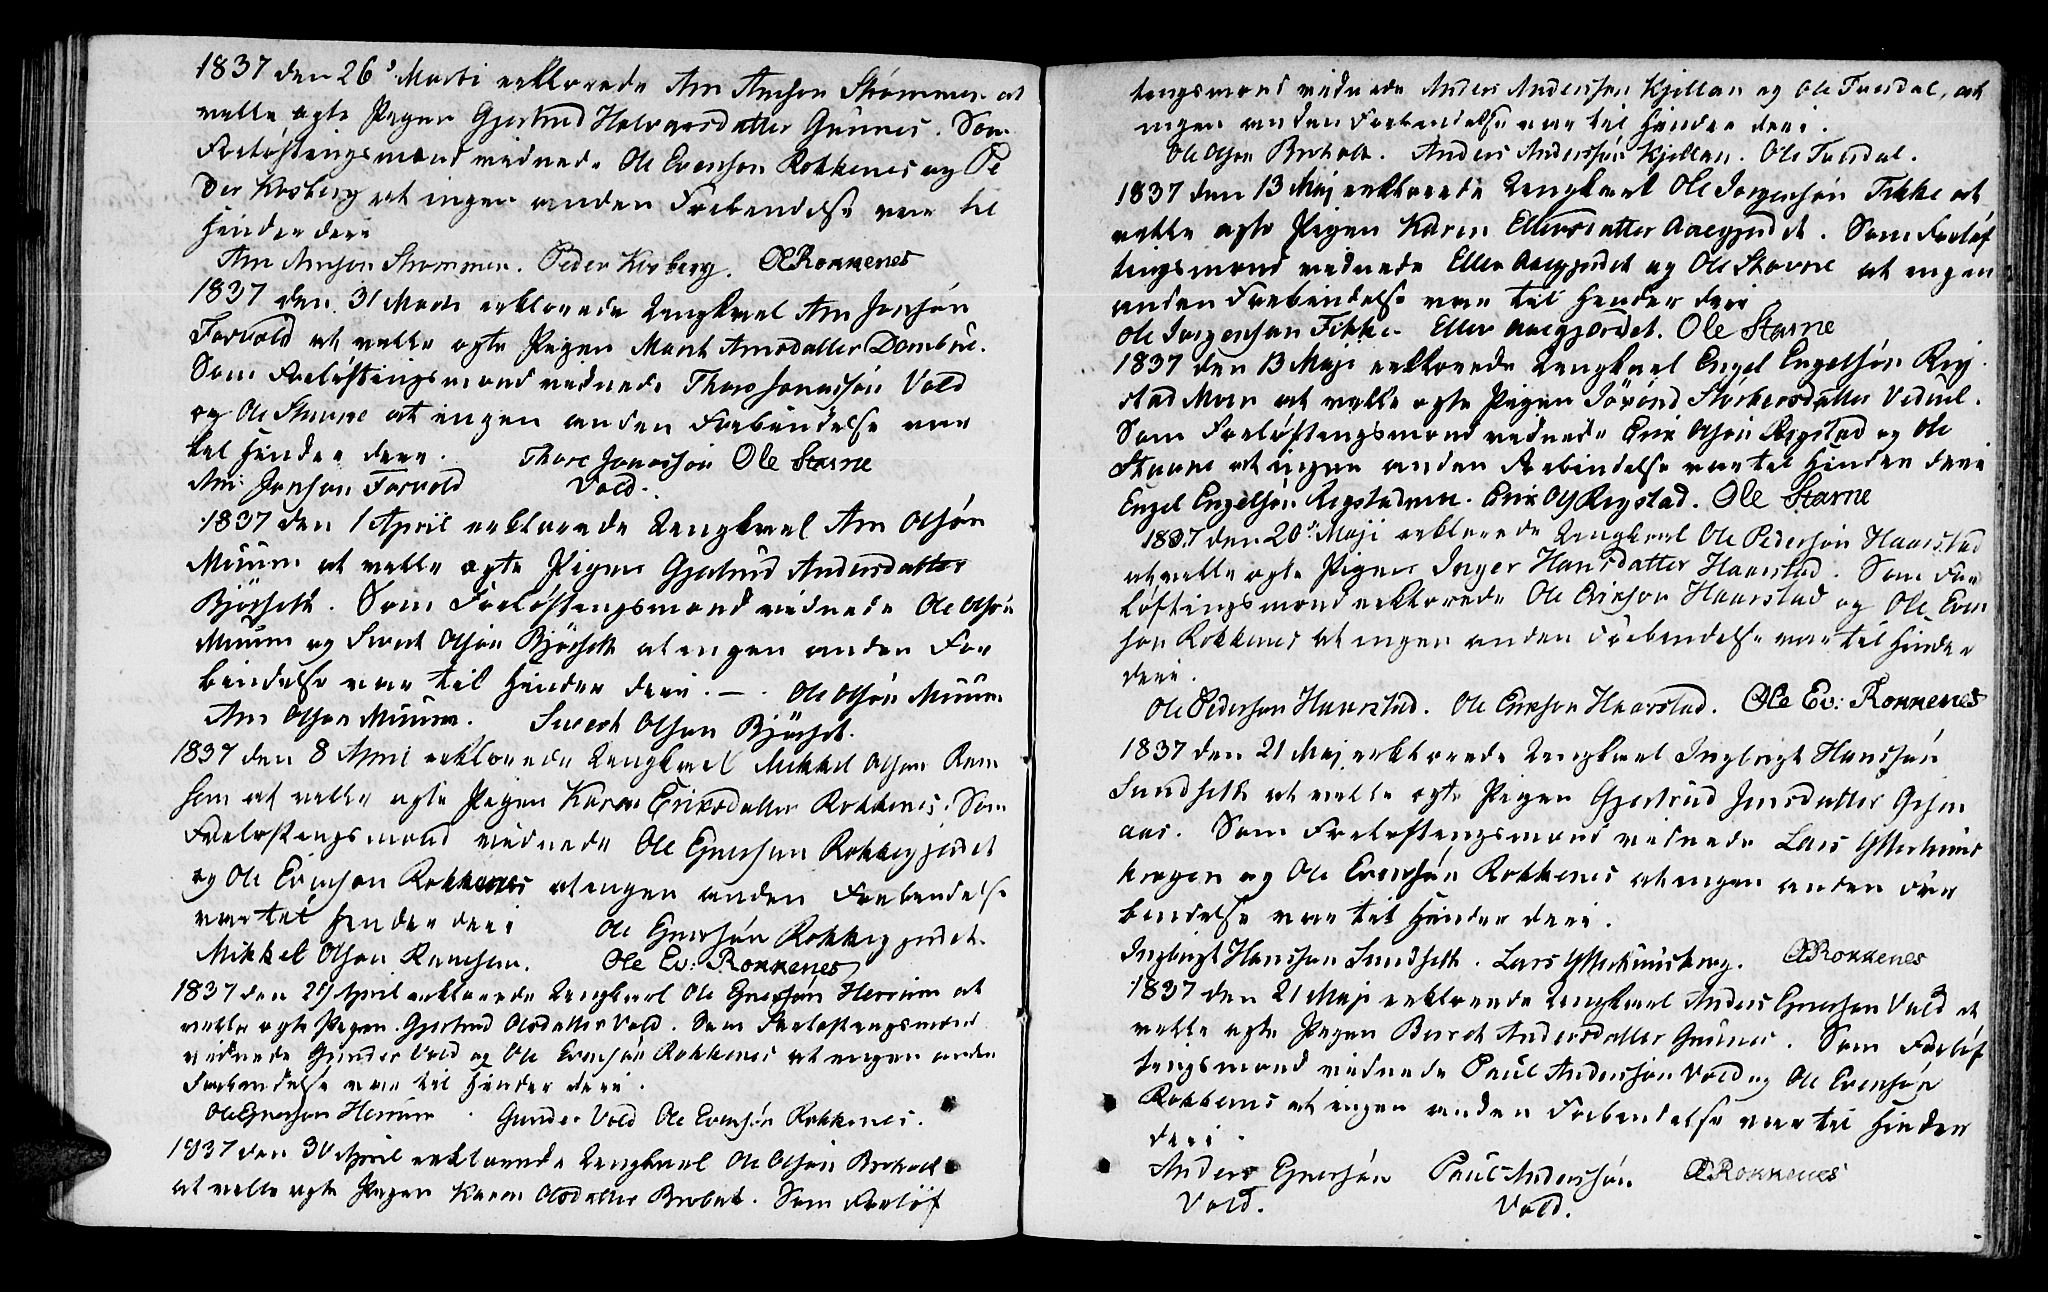 1837 den 26de Marti erklærede Arn Arnson Strømmen at
ville ægte Pigen Gjertrud Halvarsdatter Gunnes. Som
Forløftingsmænd vidnede Ole Evenson Rokkenes og Pe
der Krosberg at ingen anden Forbindelse var til
Hinder deri
Arn Arnson Strømmen. Peder Krosberg. OERokkenes
1837 den 31 Marti erklærede Ungkarl Arn Jonsøn
Forvold at ville ægte Pigen Marit Arnsdatter Dombue.
Som Forløftingsmænd vidnede Thore Jonassøn Vold
og Ole Stavne at ingen anden Forbindelse var
til Hinder deri. Thore Jonassøn Ole Stavne
Arn Jonson Forvold Vold.
1837 den 1 April erklærede Ungkarl Arn Olsøn
Muum at ville ægte Pigen Gjertrud Andersdatter
Bjørseth. Som Forløftingsmænd vidnede Ole Olsøn
Muum og Sivert Olsøn Bjørseth at ingen anden For
bindelse var til Hinder deri. — . Ole Olsøn Muum
Arn Olson Muum. Sivert Olson Bjørset.
1837 den 8 April erklærede Ungkarl Mikkel Olson Ram
sem at ville ægte Pigen Karen Eriksdatter Rokkenes. Som
Forløftingsmænd vidnede Ole Gunersen Rokkegjerdet
og Ole Evenson Rokkenes at ingen anden Forbindelse
var til Hinder deri Ole Gunersøn Rokkegjerdet.
Mikkel Olson Ramsem. Ole Ev: Rokkenes
1837 den 29 April erklærede Ungkarl Ole Gunersøn Herrum at
ville ægte Pigen Gjertrud Olsdatter Vold. Som Forløftingsmænd
vidnede Gunder Vold og Ole Evensøn Rokkenes at ingen anden
Forbindelse var til Hinder deri.
Ole Gunerson Herrum. Gunder Vold Ole Evensøn Rokkenes.
1837 den 30 April erklærede Ungkarl Ole Olsøn Broholt
at ville ægte Pigen Karen Olsdatter Broholt. Som Forløf
tingsmænd vidnede Anders Anderssøn Kjellan og Ole Fursdal, at
ingen anden Forbindelse var til Hinder deri.
Ole Olson Broholt. Anders Anderssøn Kjellan. Ole Fursdal.
1837 den 13 Maj erklærede Ungkarl Ole Jorgensøn Fikke at
ville ægte Pigen Karen Ellevsdatter Aaegjerdet. Som Forløf
tingsmænd vidnede Ellev Aaegjerdet og Ole Stavne at ingen
anden Forbindelse var til Hinder deri
Ole Jorgensøn Fikke. Ellev Aaegjærdet. Ole Stavne
1837 den 13 Maji erklærede Ungkarl Engel Engelsøn Rig
stad Moen at ville ægte Pigen Jørønd Størkersdatter Vedul.
Som Forløftingsmænd vidnede Erik Olsøn Rigstad og Ole
Stavne at ingen anden Forbindelse var til Hinder deri
Engel Engelsøn Rigstadmoen. Erik Ols Rigstad. Ole Stavne
1837 den 20de Maji erklærede Ungkarl Ole Pedersøn Haarstad
at ville ægte Pigen Inger Hansdatter Haarstad. Som For
løftingsmænd erklærede Ole Erikson Haarstad og Ole Even
søn Rokkenes at ingen anden Forbindelse var til Hinder
deri.
Ole Pederson Haarstad. Ole Erikson Haarstad. Ole Ev: Rokkenes
1837 den 21 Maj erklærede Ungkarl Ingbrigt Hanssøn
Sundseth at ville ægte Pigen Gjertrud Jensdatter
aas. Som Forløftingsmænd vidnede Lars Ytterhuus
krogen og Ole Evensøn Rokkenes at ingen anden For
bindelse var til Hinder deri.
Ingbrigt Hansson Sundseth. Lars Ytterhuuskrog. OERokkenes
1837 den 21 Maji erklærede Ungkarl Anders Gunerson Vold at
ville ægte Pigen Bereth Andersdatter Gunnes. Som Forløf
tingsmænd vidnede Paul Andersøn Vold og Ole Evensøn
Rokkenes at ingen anden Forbindelse var til Hinder
deri.
Anders Gunersøn Paul Anderssøn OERokkenes
Vold. Vold.